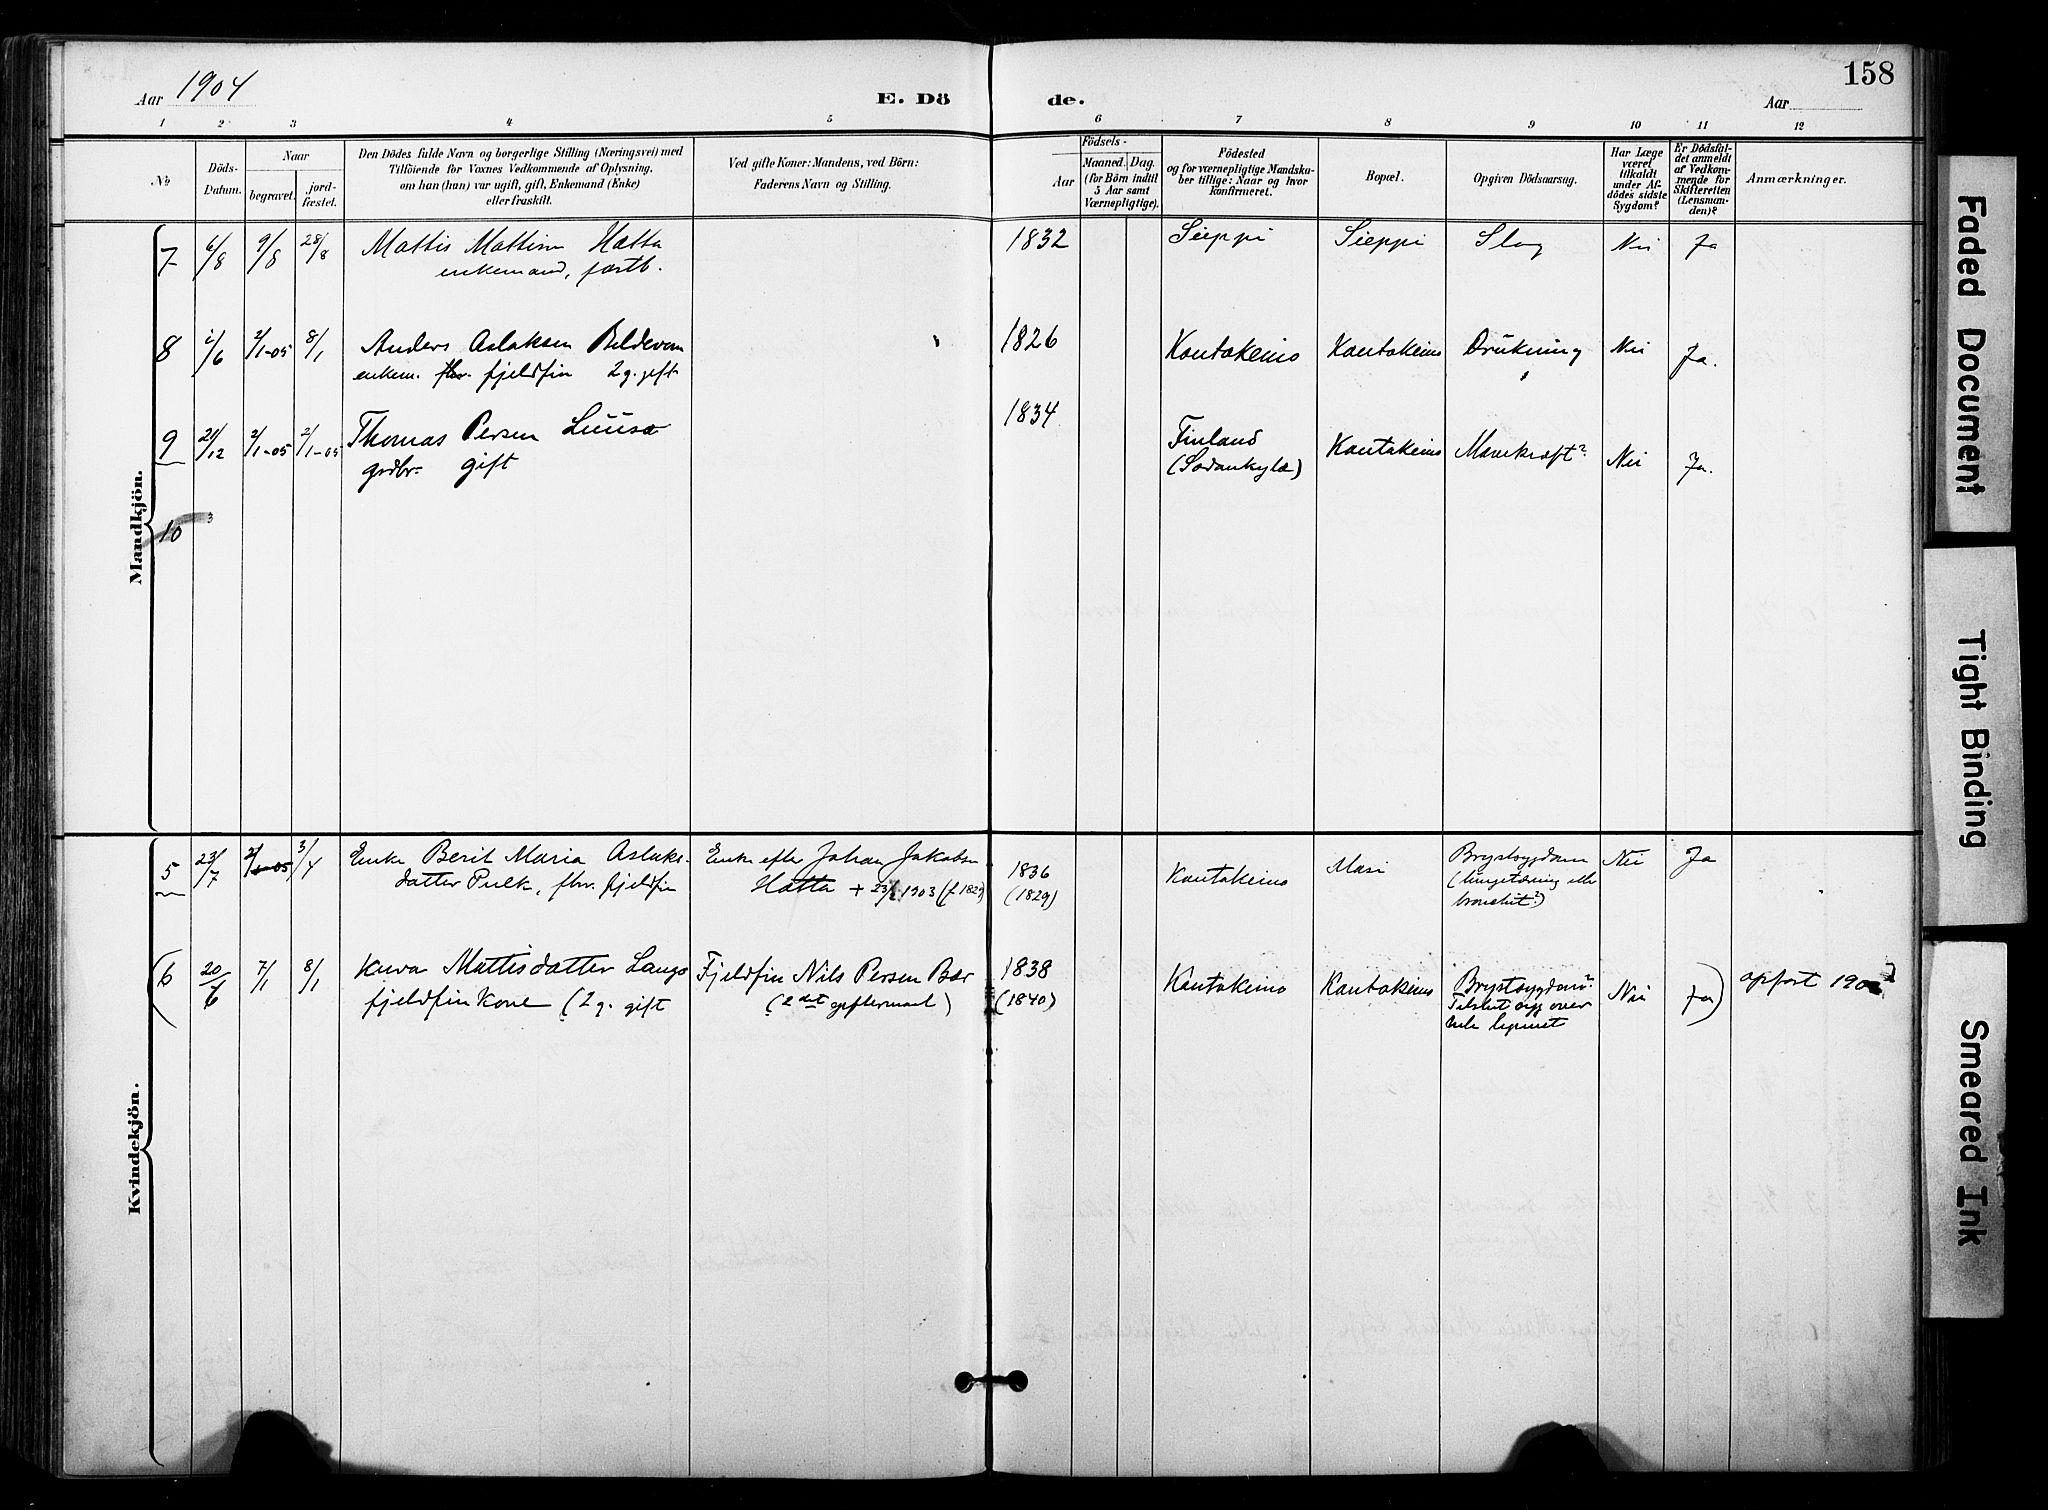 Aar 1904
E. Dö
de.
158
Aar
1 2 3 4 5 6 7 8 9 10 11 12
No
Döds-
Datum.
Naar
begravet.
jord-
fæstet.
Den Dödes fulde Navn og borgerlige Stilling (Næringsvei) med
Tilföiende for Voxnes Vedkommende af Oplysning,
om han (hun) var ugift, gift, Enkemand (Enke)
eller fraskilt.
Ved gifte Koner: Mandens, ved Börn:
Faderens Navn og Stilling.
Födsels-
Aar
Maaned. Dag.
(for Börn indtil
5 Aar samt
Værnepligtige).
Födested
og for værnepligtige Mandska-
ber tillige: Naar og hvor
konfirmeret.
Bopæl.
Opgiven Dödsaarsag.
Har Læge
været
tilkaldt
under Af-
dödes sidste
Sygdom?
Er Dödsfal-
det anmeldt
af Vedkom-
mende for
Skifteretten
(Lensman-
den)?
Anmærkninger.
Mandkjön.
7 6/8 9/8 28/8 Mattis Hætta 1832 Sieppi Sieppi Slag Nei Ja
enkemand, fastb.
8 /6 2/1-05 8/1 Anders Aslaksen 1826 Kautokeino Kautokeino Drukning Nei Ja.
enkem. fhv. fjeldfin 2 g. gift
9 21/12 2/1-05 2/1-05 Thomas Persen 1834 Finland Kautokeino Mavekræft? Nei Ja.
grdbr. gift (Sodankylæ)
10
Kvindekjön.
5 23/7 2/1-05 3/4 Enke Berit Maria Aslaks- Enke efter Johan Jakobsen 1836 Kautokeino Masi Brystsygdom Nei Ja
datter Pulk, fhv. fjeldfin Hætta + 1903 (f. 1829) (1829) (lungetæring eller
bronchit?)
(6 20/6 7/1 8/1 Mattisdatter Fjeldfin Nils Persen Bær 1838 Kautokeino Kautokeino Brystsygdom? Nei Ja) opført
fjeldfin kone (2 g. gift (2det giftermaal) (1840) Tilslut over
hele legemet
Faded Document
Tight Binding
Smeared Ink